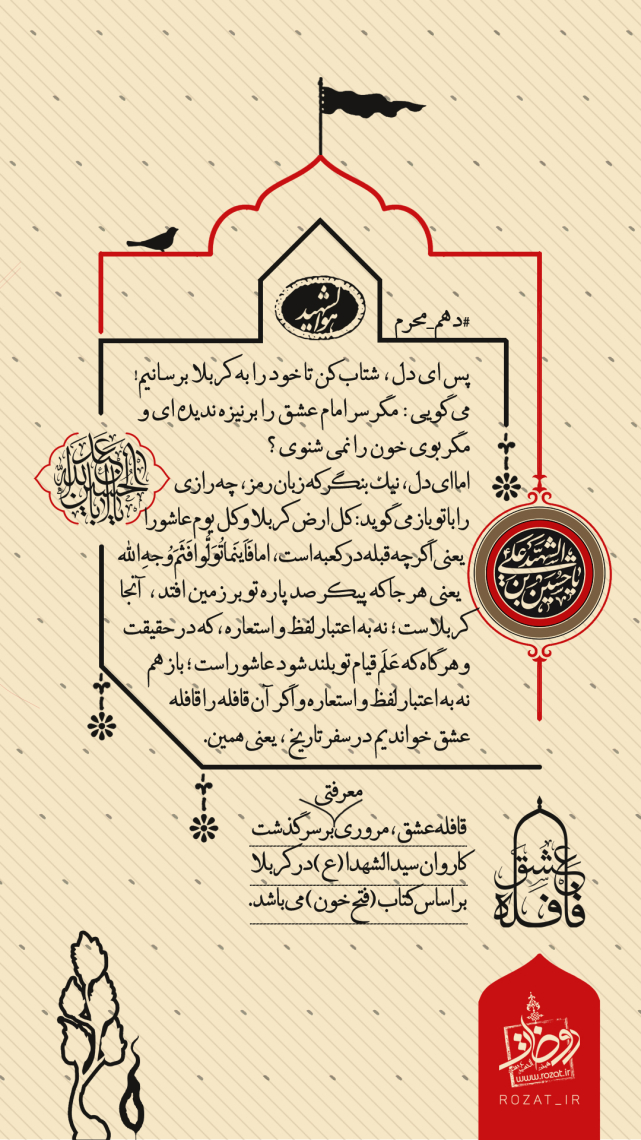 هوالشهید
#دهم_محرم
پس ای دل، شتاب کن تا خود را به کربلا برسانیم!
می‌گویی: مگر سر امام عشق را بر نیزه ندیده ای و
مگر بوی خون را نمی شنوی ؟
اما ای دل، نیك بنگر که زبان رمز، چه رازی
را با تو باز می گوید: کل ارض کربلا و کل یوم عاشورا
یعنی اگرچه قبله در کعبه است، اما فَاَینَما تُوَلُّوا فَثَمَّ وَجهِ الله
یعنی هر جا که پیکر صد پاره تو بر زمین افتد ، آنجا
کربلاست؛ نه به اعتبار لفظ و استعاره، که در حقیقت
و هرگاه که عَلَم قیام تو بلند شود عاشوراست؛ باز هم
نه به اعتبار لفظ و استعاره و اگر آن قافله را قافله
عشق خواندیم در سفر تاریخ ، یعنی همین.
معرفتی
قافله عشق، مروری بر سرگذشت
کاروان سیدالشهدا (ع) در کربلا
بر اساس کتاب (فتح خون) می‌باشد.
قافله عشق
روضات
www.rozat.ir
ROZAT_IR